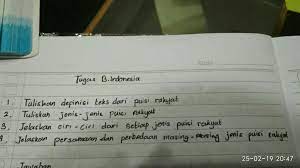 Tugas B.Indonesia
1. Tuliskan depinisi teks dari puisi rakyat
2. Tuliskan jenis-jenis puisi rakyat
3. Jelaskan ciri-ciri dari setiap jenis puisi rakyat
4. Jelaskan persamaan dan perbedaan masing-masing jenis puisi rakyat
Jawaban
25-02-19 20:47